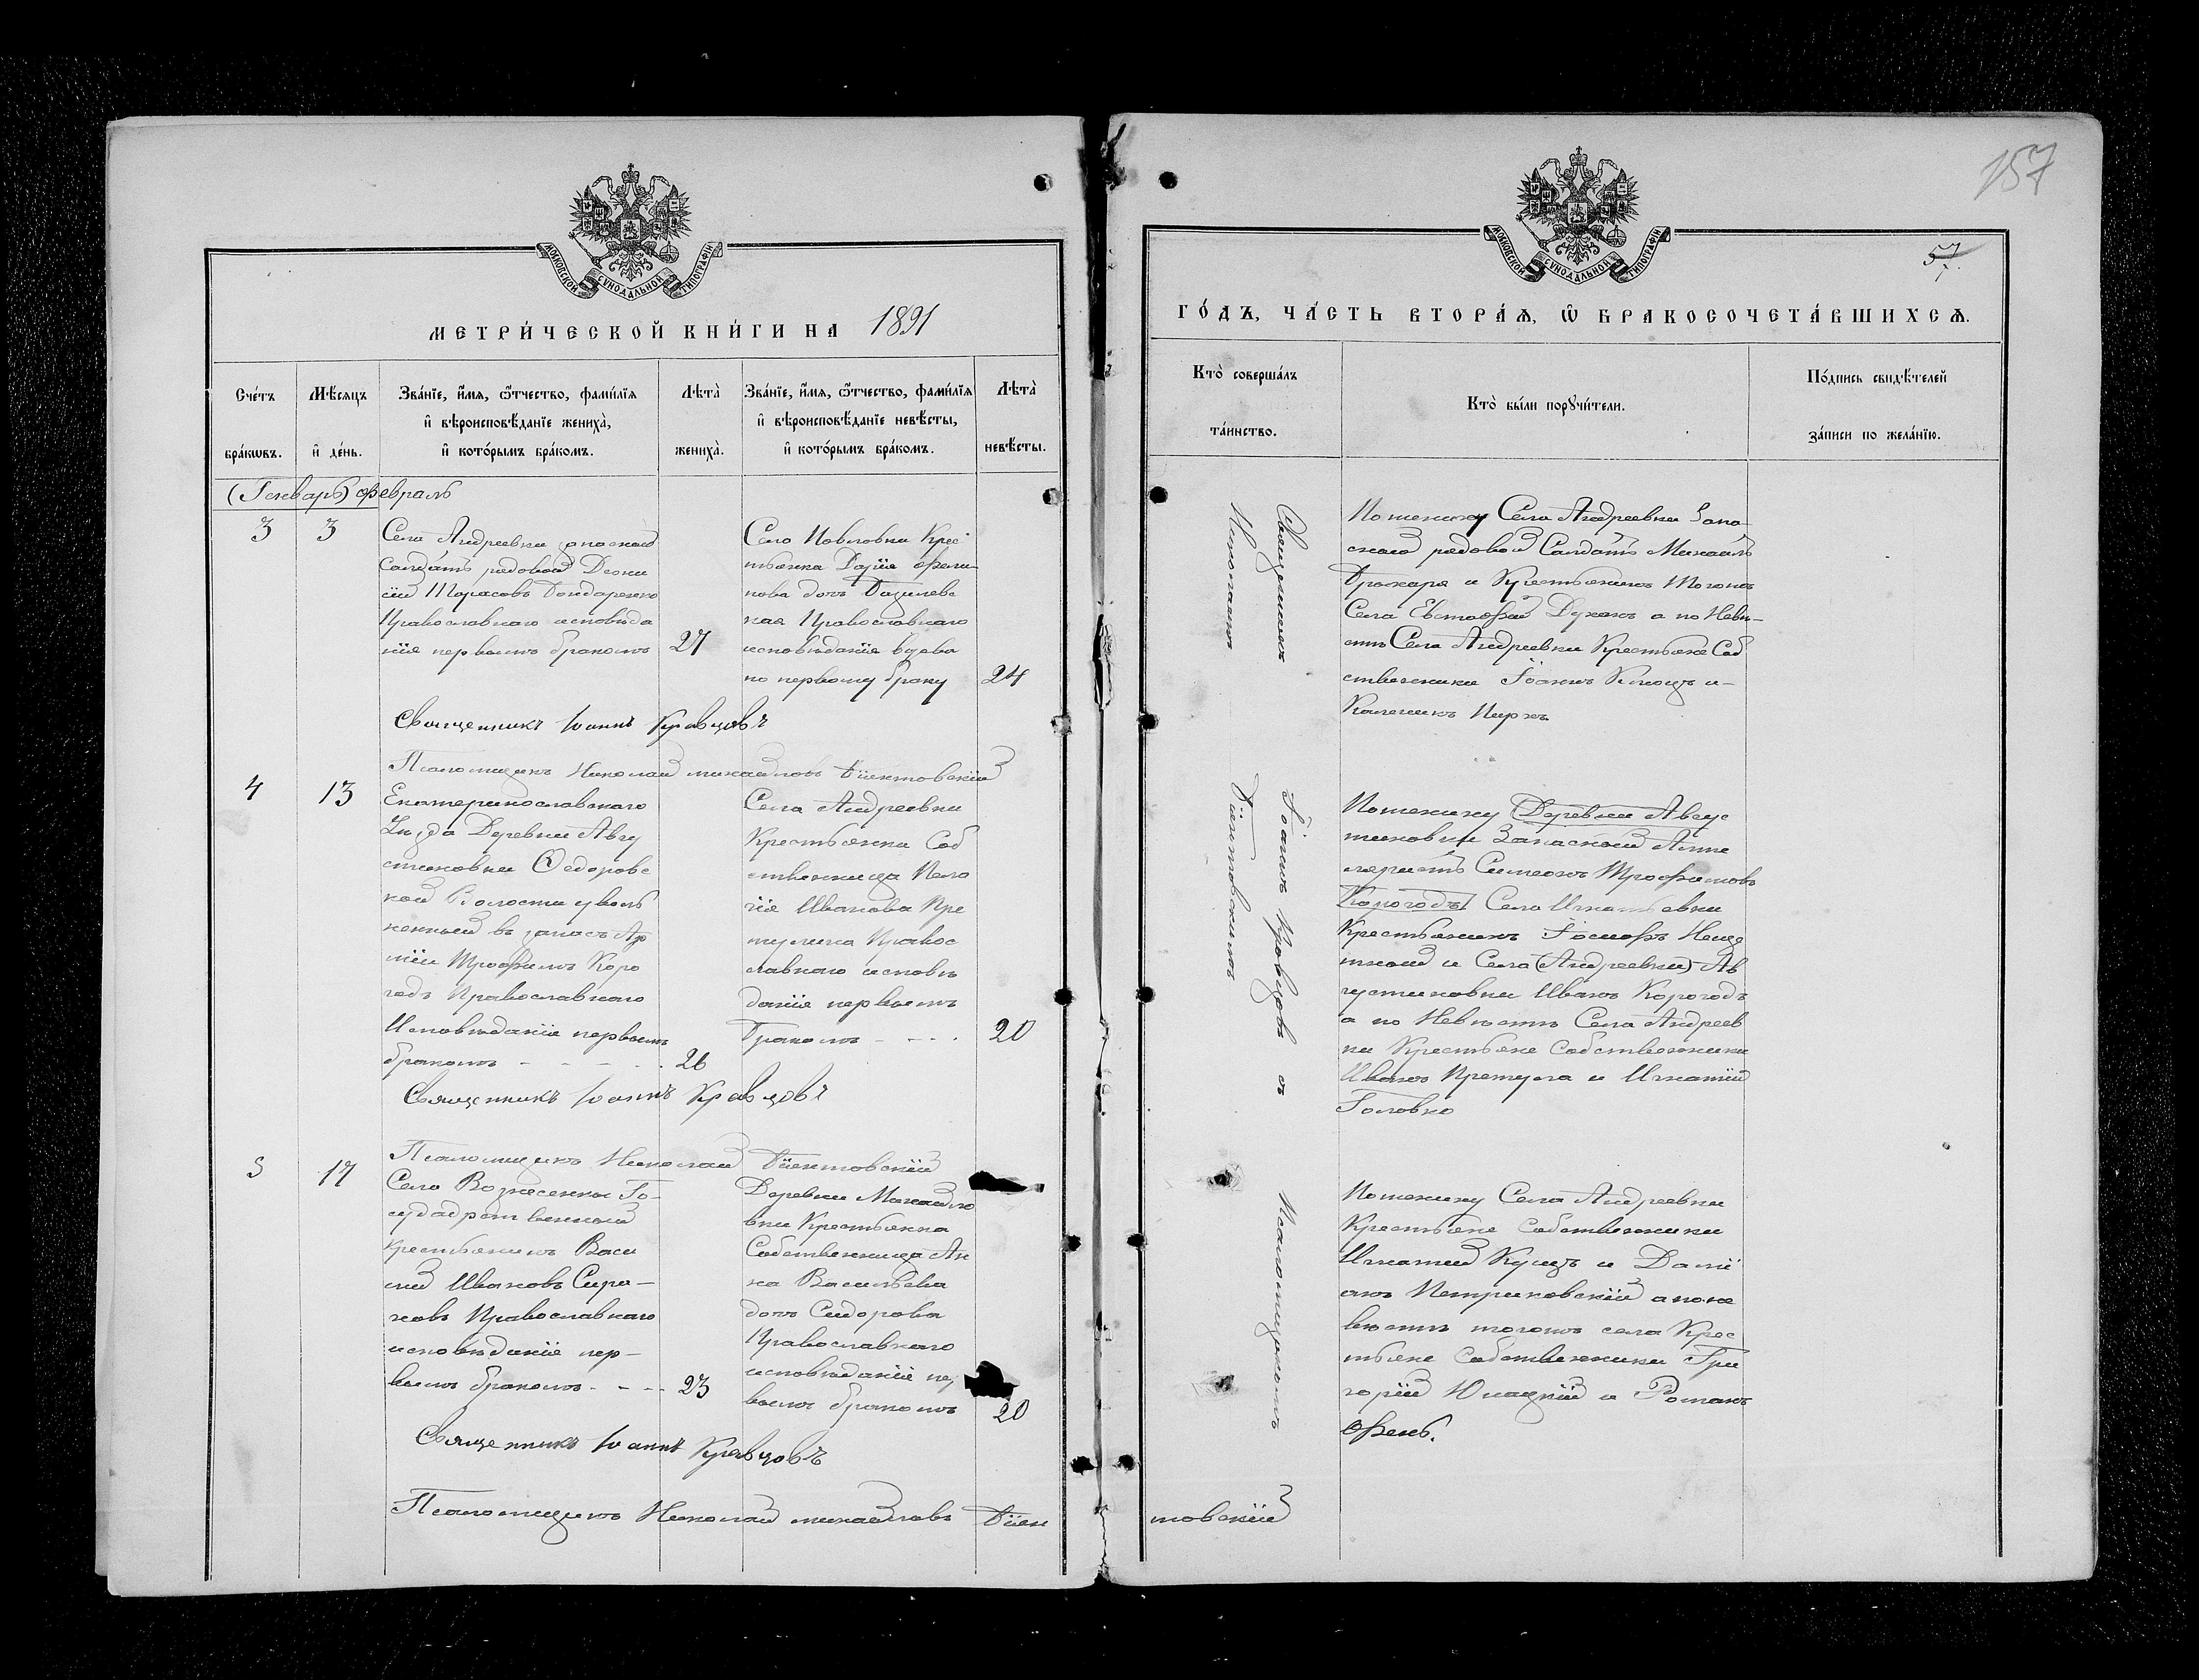 МОСКОВСКОЙ СУНОДАЛЬНОЙ ТИПОГРАФІИ
МЕТРИ́ЧЕСКОЙ КНИ́ГИ НА 1891
Сче́тъ бра́кωвъ.
Мѣ́сяцъ и҆ де́нь.
Зва́нїе, и҆́мя, ѻ҆́тчество, фами́лїя
и҆ вѣроисповѣ́данїе жениха̀,
и҆ кото́рымъ бра́комъ.
Лѣта̀ жениха̀.
Зва́нїе, и҆́мя, ѻ҆́тчество, фами́лїя
и҆ вѣроисповѣ́данїе невѣ́сты,
и҆ кото́рымъ бра́комъ.
Лѣта̀ невѣ́сты.
(Генварь) Февраль
3
3
Села Андреевки запасной
Салдатъ рядовой Діони
сій Тарасовъ Бондаренко
Православнаго исповѣда
нія первымъ бракомъ
27
Села Павловки Крес
тьянка Дарія Фили
пова дочь Базилевс
кая Православнаго
исповѣданія вдова
по первому браку
24
Священникъ Іоаннъ Кравцовъ
Псаломщикъ Николай Михаиловъ
4
13
Екатеринославскаго
Уѣзда Деревни Авгу
стиновки Федоровс
кой Волости уволь
ненный въ запасъ Ар
міи Трофимъ Коро
годъ Православнаго
Исповѣданія первымъ
бракомъ - - - -
26
Села Андреевки
Крестьянка Соб
ственница Пела
гія Иванова Пре
тулина Правос
лавнаго исповѣ
данія первымъ
бракомъ - - - .
20
Священникъ Іоаннъ Кравцовъ
Псаломщикъ Николай
5
17
Села Вознесенки Го-
сударственный
Крестьянинъ Васи
лій Ивановъ
Православнаго
исповѣданія пер-
вымъ бракомъ - - -
23
Деревни Михайло
вки Крестьянка
Собственница Ан
на Васильева
дочь Сидорова
Православнаго
исповѣданія пер
вымъ бракомъ
20
Священникъ Іоаннъ Кравцовъ
Псаломщикъ Николай Михаиловъ
157
57
МОСКОВСКОЙ СУНОДАЛЬНОЙ ТИПОГРАФІИ
ГО́ДЪ, ЧА́СТЬ ВТОРА́Я, Ѡ҆ БРАКОСОЧЕТА́ВШИХСЯ.
Кто̀ соверша́лъ
та́инство.
Кто̀ бы́ли порꙋчи́тели.
По́дпись свидѣ́телей
за́писи по жела́нїю.
Священникъ Іоаннъ Кравцовъ съ Псаломщикомъ
Николаемъ
По жениху Села Андреевки Запа
сной рядовой Салдатъ Михаилъ
и Крестьянинъ Тогожъ
Села Евстафій а по Невѣ-
стѣ Села Андреевки Крестьяне Соб
ственники Іоаннъ и-
По жениху Деревни Авгус
тиновки Запасной
Симеонъ Трофимовъ
Корогодъ Села Игнатьевки
Крестьянинъ Іосифъ
и Села (Андреевки) Ав
густиновки Иванъ Корогодъ
а по Невѣстѣ Села Андреев
ки Крестьяне Собственники
Иванъ Претула и Игнатій
Головко
По жениху Села Андреевки
Крестьяне Собственники
Игнатій Куцъ и Даміа
анъ Петриковскій а по не
вѣстѣ тогожъ села Крес
тьяне Собственники Гри
горій и Романъ
товскій